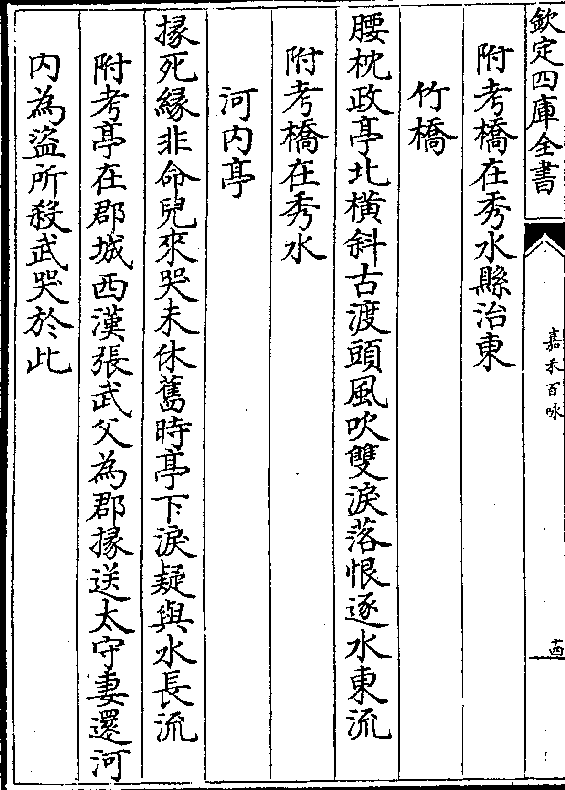 欽定四庫全書
嘉禾百咏
十四
附考橋在秀水縣治東
竹橋
腰枕政亭北橫斜古渡頭風吹雙淚落恨逐水東流
附考橋在秀水
河內亭
掾死緣非命兒來哭未休舊時亭下淚疑與水長流
附考亭在郡城西漢張武父為郡掾送太守妻還河
內為盜所殺武哭於此